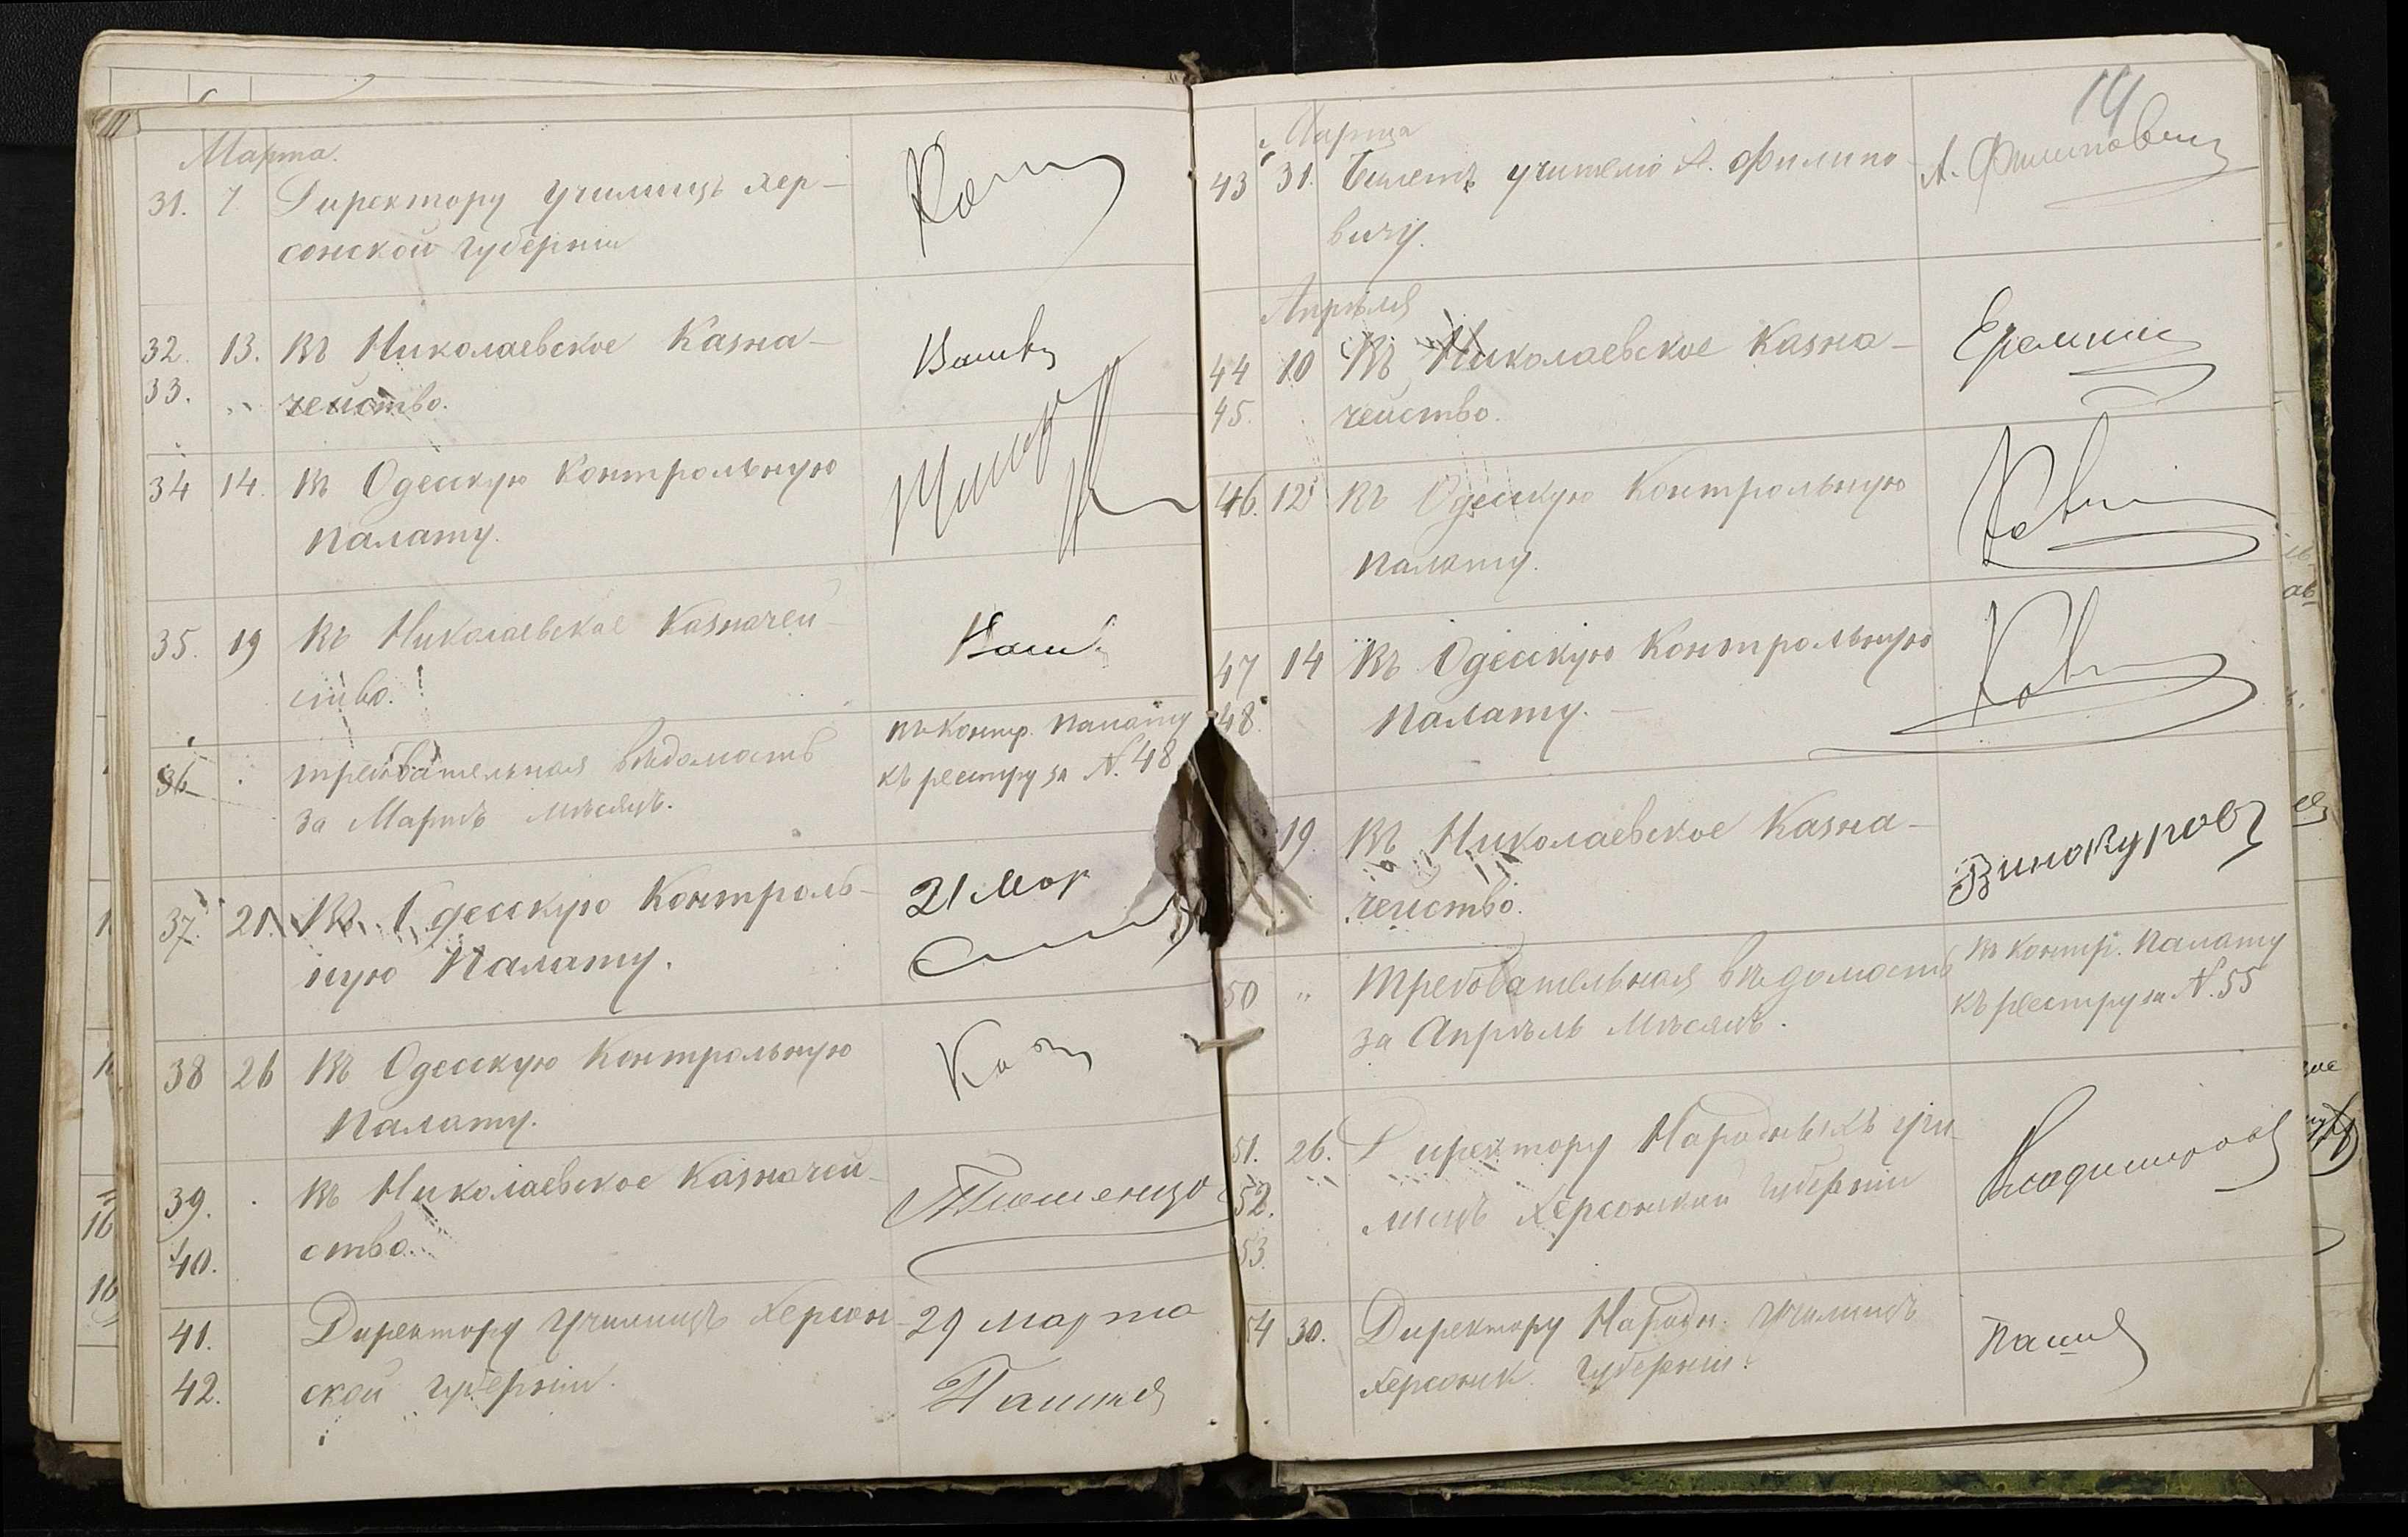 Марта.
31. 7. Директору училищъ Хер-
сонской губерніи
32. 13. Въ Николаевское Казна-
33. „ чейство.
34 14. Въ Одесскую Контрольную
Палату.
35. 19 Въ Николаевское Казначей-
ство.
36 требовательная вѣдомость
за Мартъ мѣсяцъ.
въ Контр. Палату
къ реестру за N. 48
37. 21. Въ Одесскую Контроль-
ную Палату.
21 Мар
38 26 Въ Одесскую Контрольную
Палату.
39. Въ Николаевское Казначей-
40. ство.
41. Директору училищъ Херсон-
42. ской губерніи.
29 марта
14
Марта
43 31. Билетъ учителю А. Филипо-
вичу.
А. Филиповичъ
Апрѣля
44 10 Въ Николаевское Казна-
45. чейство.
46. 12 Въ Одесскую Контрольную
Палату.
47 14 Въ Одесскую Контрольную
48 Палату.
19. Въ Николаевское Казна-
чейство.
Винокуровъ
50 „ Требовательная вѣдомость
за Апрѣль мѣсяцъ.
въ Контр. Палату
къ реестру за N. 55
51. 26. Директору Народныхъ учи-
52. лищъ Херсонской губерніи
53.
Владимировъ
54 30. Директору Народн. училищъ
Херсонск. губерніи.